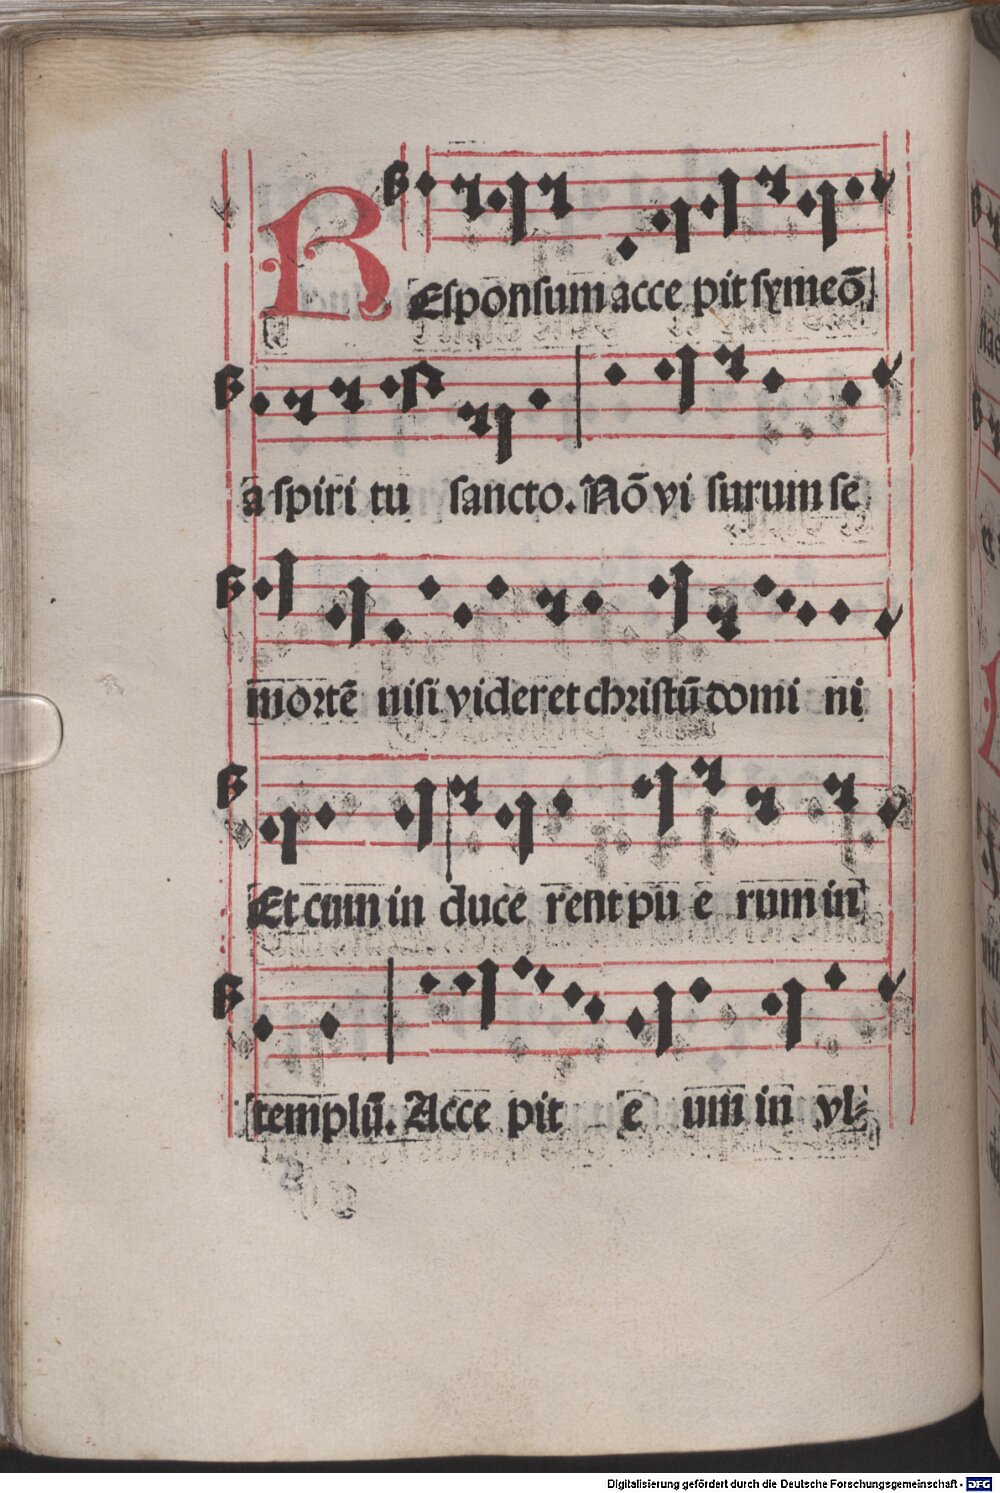 REsponsum acce pit symeō
a spiri tu sancto. Nō vi surum se
mortē nisi videret christū domi ni
Et cum in duce rent pu e rum in
templū. Acce pit e um in vl⸗
Digitalisierung gefördert durch die Deutsche Forschungsgemeinschaft - DFG